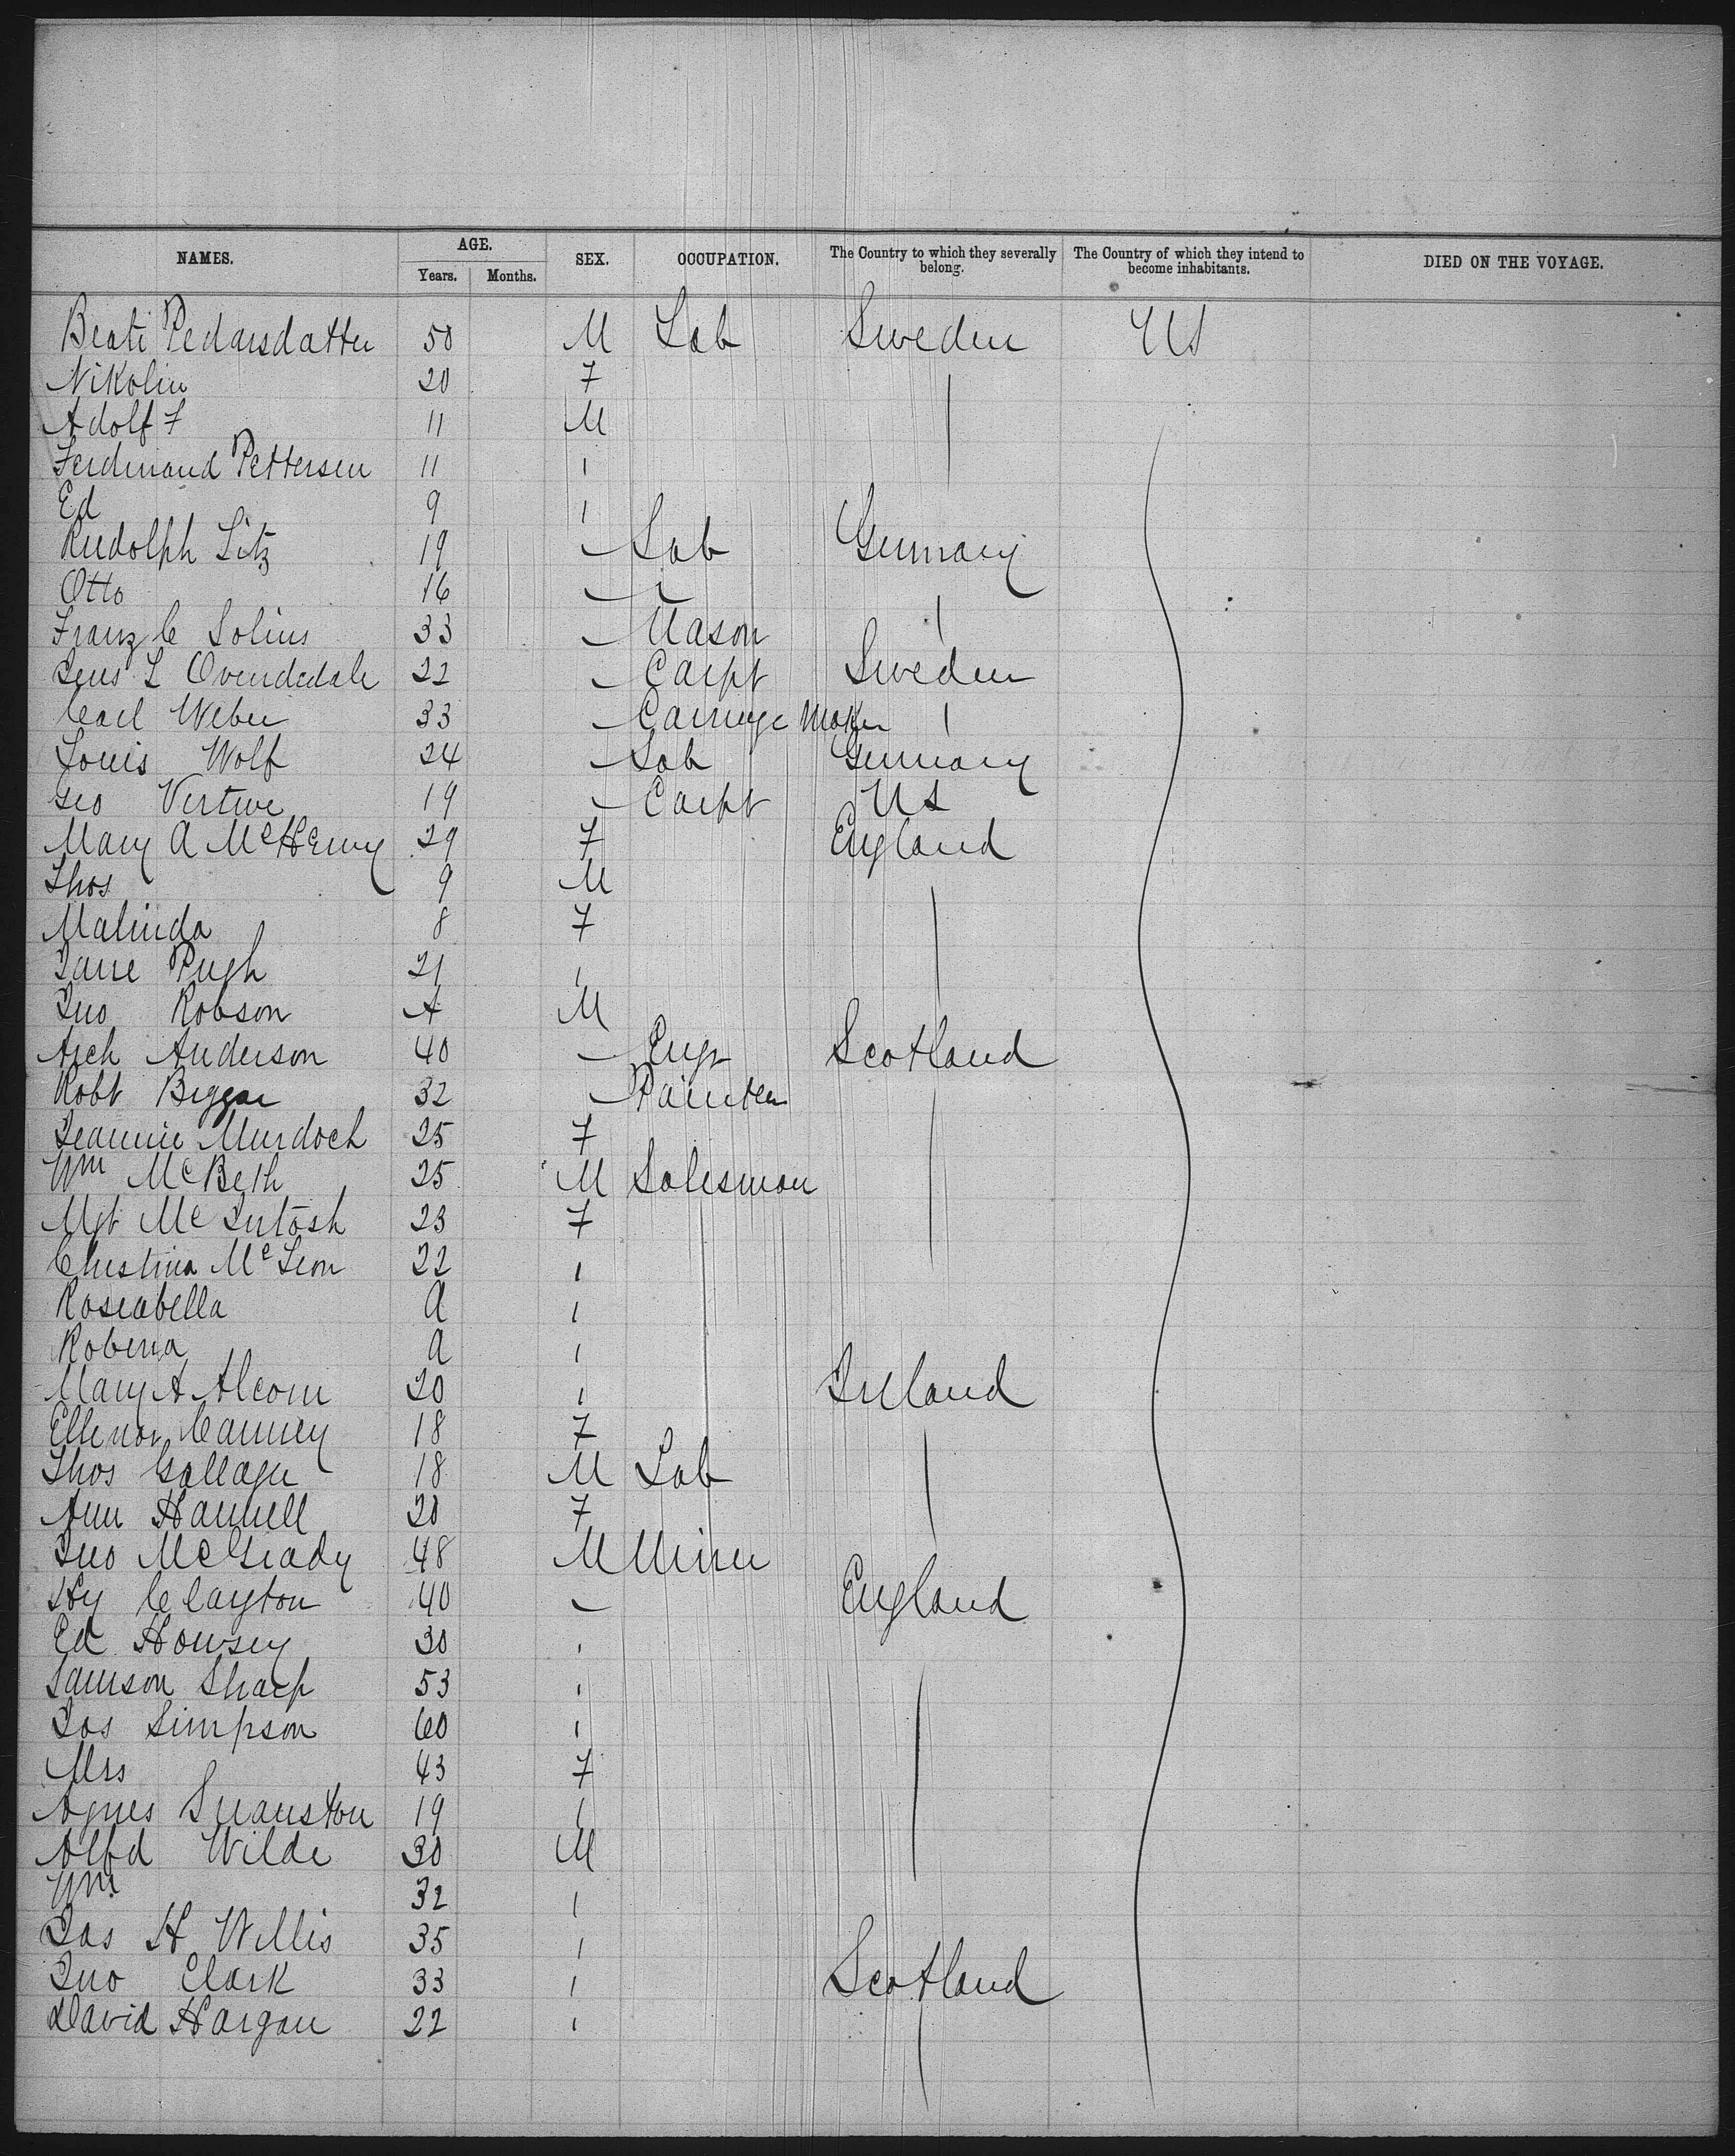 NAMES. AGE. Years. Months. SEX. OCCUPATION. The Country to which they severally belong. The Country of which they intend to become inhabitants. DIED ON THE VOYAGE.
Beate Pedarsdatter 50 M Lab Sweden US
Nikolin 20 F
Adolf F 11 M
Ferdinand Pettersen 11 "
Ed 9 "
Rudolph Litz 19 " Lab Germany
Otto 16 " "
Franz C Solius 33 " Mason "
Jens L Ovendedale 22 " Carpt Sweden
Carl Weber 33 " Carriage Maker "
Louis Wolf 24 " Lab Germany
Geo Vertue 19 " Carpt US
Mary A McHenry 29 F England
Thos 9 M
Malinda 8 F
Jane Pugh 21 "
Jno Robson A M
Arch Anderson 40 " Engr Scotland
Robt Biggar 32 " Painter
Jeannie Murdoch 25 F
Wm McBeth 25 M Salesman
Mgt McIntosh 23 F
Christina McLeon 22 "
Roseabella A "
Robina A "
Mary A Alcorn 20 " Ireland
Ellenor Canney 18 F
Thos Gallager 18 M Lab
Ann Hannell 20 F
Jno McGrady 48 M Miner
Hy Clayton 40 " England
Ed Howsey 30 "
Samson Sharp 53 "
Jos Simpson 60 "
Mrs 43 F
Agnes Swanston 19 "
Alfd Wilde 30 M
Wm 32 "
Jas H Willis 35 "
Jno Clark 33 " Scotland
David Hargan 22 "